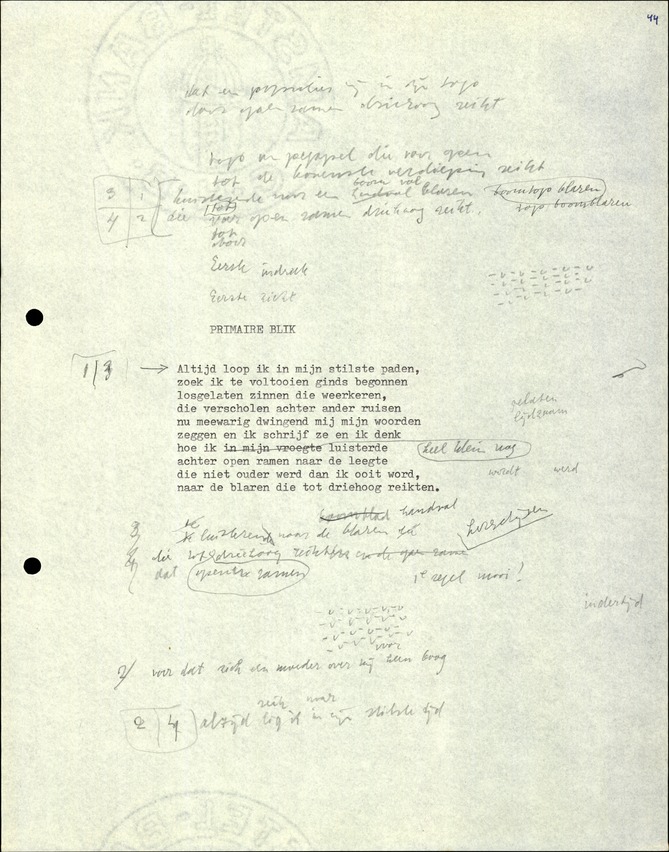 44
dat en populier zij in zijn top
door open ramen driehoog reikt
top en peppel die voor geen
tot de bovenste verdieping reikt
3 1 luisterende naar een handvol blaren boomtop blaren
boom vol
4 2 die voor open ramen driehoog reikt. top boomblaren
tot
door
Eerste indruk
Eerste zicht
PRIMAIRE BLIK
1/3 → Altijd loop ik in mijn stilste paden,
zoek ik te voltooien ginds begonnen
losgelaten zinnen die weerkeren,
die verscholen achter ander ruisen
nu meewarig dwingend mij mijn woorden
zeggen en ik schrijf ze en ik denk
hoe ik in mijn vroegte luisterde heel klein nog
achter open ramen naar de leegte
die niet ouder werd dan ik ooit word, wordt werd
naar de blaren die tot driehoog reikten.
gelaten
lijdzaam
boomblad handvol
3 te luisteren naar de blaren
4 die tot driehoog reikten en de open ramen herschrijven
dat open ramen
1e regel mooi!
indertijd
voor
2/ voor dat zich een moeder over mij heen boog
zoek naar
2 4 altijd lig ik in mijn stilste tijd